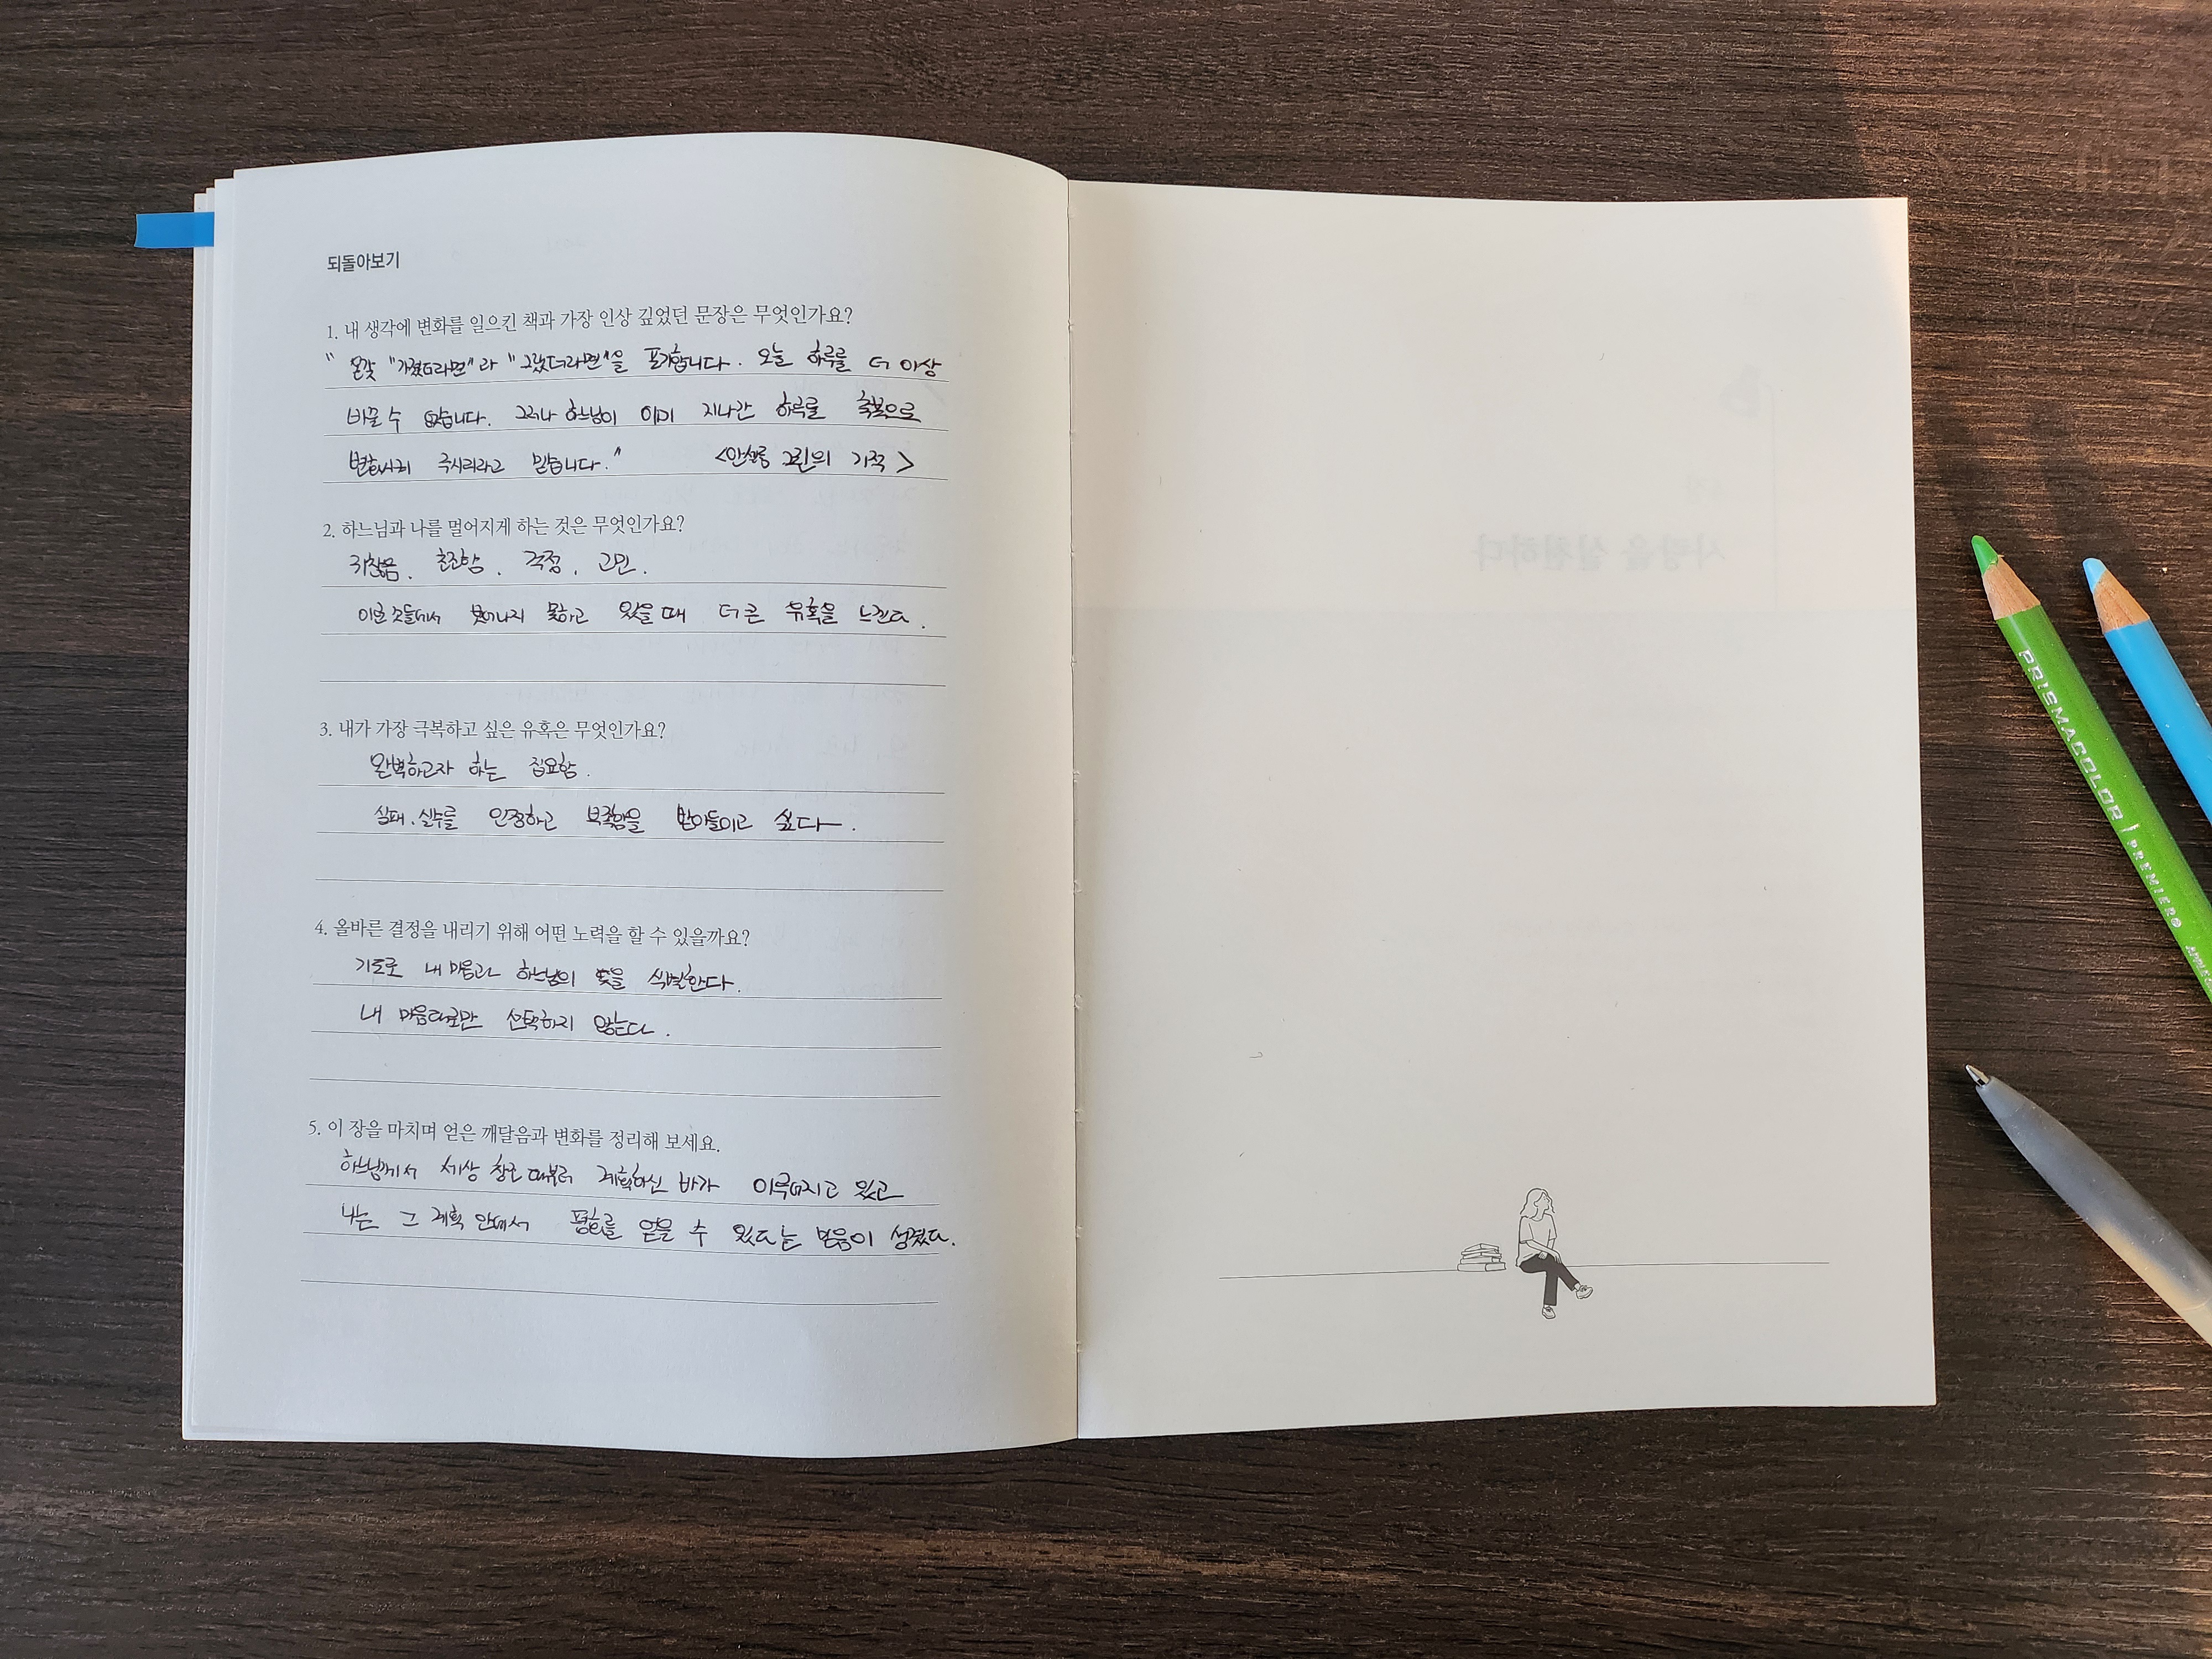 되돌아보기
1. 내 생각에 변화를 일으킨 책과 가장 인상 깊었던 문장은 무엇인가요?
" 온갖 "가졌더라면"과 "그랬더라면"을 포기합니다. 오늘 하루를 더 이상
바꿀 수 없습니다. 그러나 하느님이 이미 지나간 하루를 축복으로
변화시켜 주시리라고 믿습니다." <안셀름 그륀의 기적>
2. 하느님과 나를 멀어지게 하는 것은 무엇인가요?
귀찮음, 초조함, 걱정, 고민.
이런 것들에서 벗어나지 못하고 있을 때 더 큰 유혹을 느낀다.
3. 내가 가장 극복하고 싶은 유혹은 무엇인가요?
완벽하고자 하는 집요함.
실패, 실수를 인정하고 부족함을 받아들이고 싶다.
4. 올바른 결정을 내리기 위해 어떤 노력을 할 수 있을까요?
기도로 내 마음과 하느님의 뜻을 식별한다.
내 마음대로만 선택하지 않는다.
5. 이 장을 마치며 얻은 깨달음과 변화를 정리해 보세요.
하느님께서 세상 창조 때부터 계획하신 바가 이루어지고 있고
나는 그 계획 안에서 평화를 얻을 수 있다는 믿음이 생겼다.
PRISMACOLOR | PREMIER